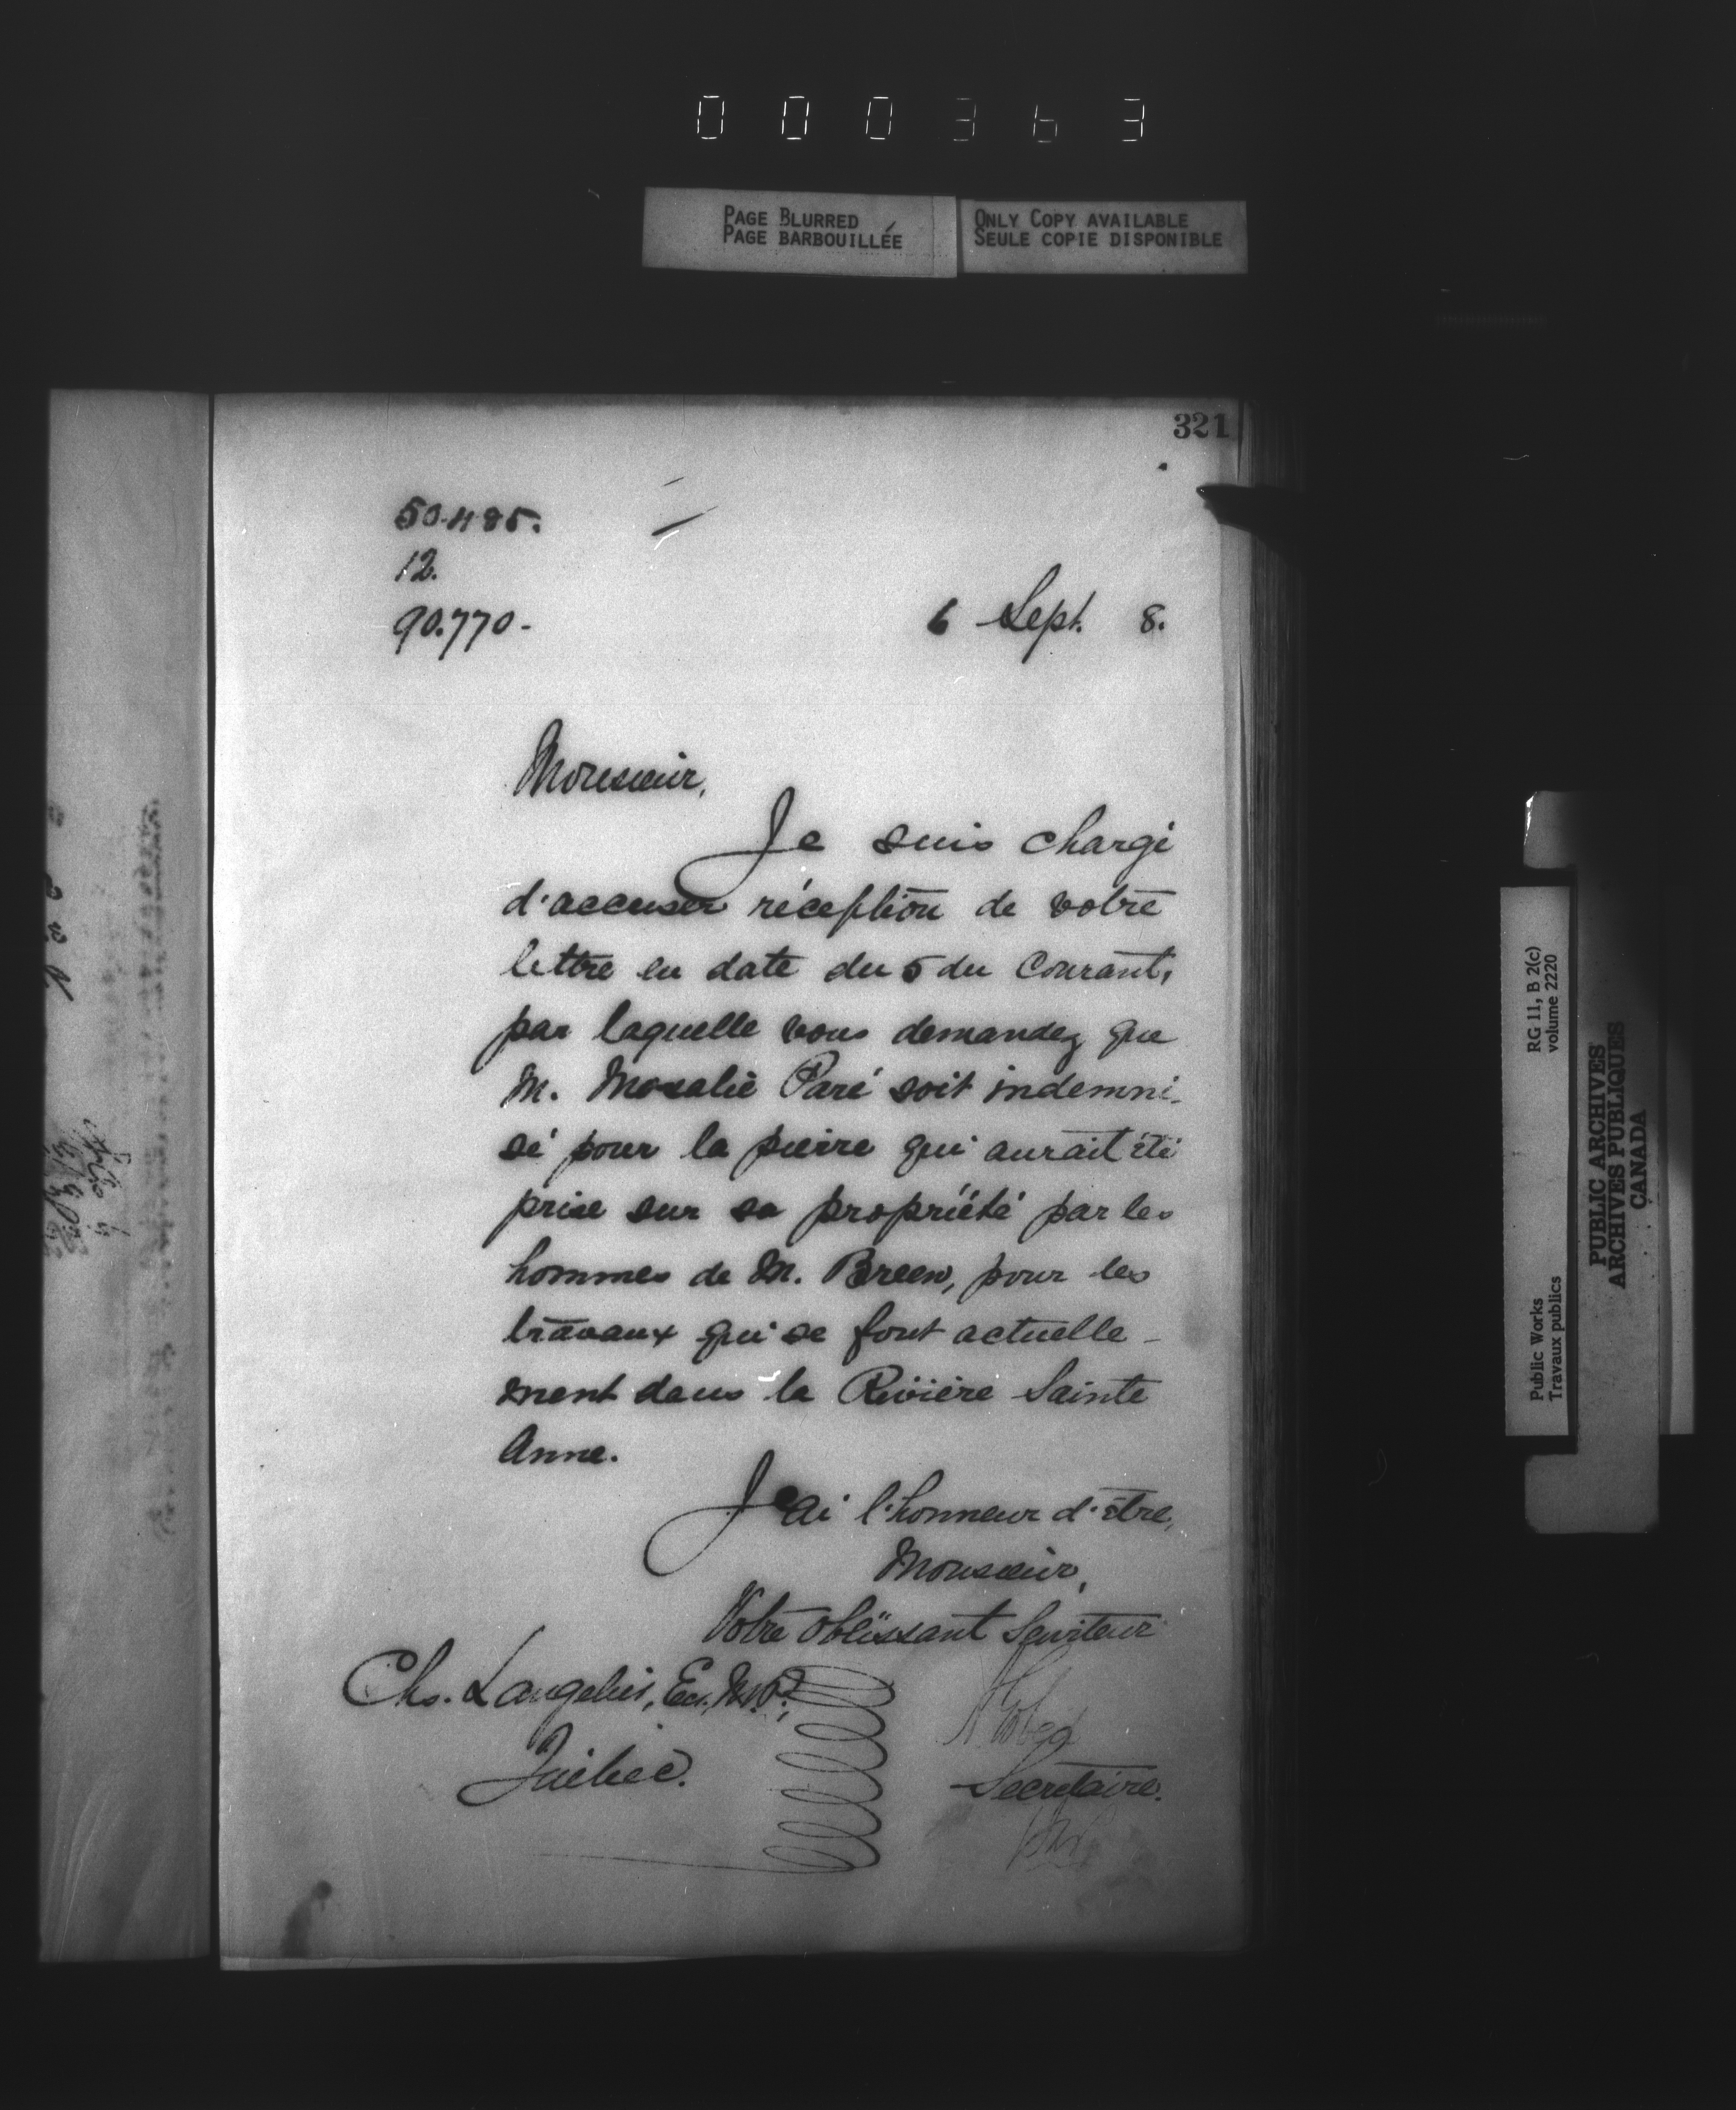 000363
PAGE BLURRED
PAGE BARBOUILLÉE
ONLY COPY AVAILABLE
SEULE COPIE DISPONIBLE
321
50.485.
12.
90.770-
6 Sept. 8.
Monsieur,
Je suis chargé
d'accuser réception de votre
lettre en date du 5 du courant,
par laquelle vous demandez que
M. Paré soit indemni-
sé pour la pierre qui aurait été
prise sur sa propriété par les
hommes de M. Breen, pour les
travaux qui se font actuelle-
ment dans la Rivière Sainte
Anne.
J'ai l'honneur d'être,
Monsieur,
Votre obéissant Serviteur
Chs. Langelier, Ecr. M.P.,
Québec.
Secrétaire.
Public Works
Travaux publics
RG 11, B 2(c)
volume 2220
PUBLIC ARCHIVES
ARCHIVES PUBLIQUES
CANADA